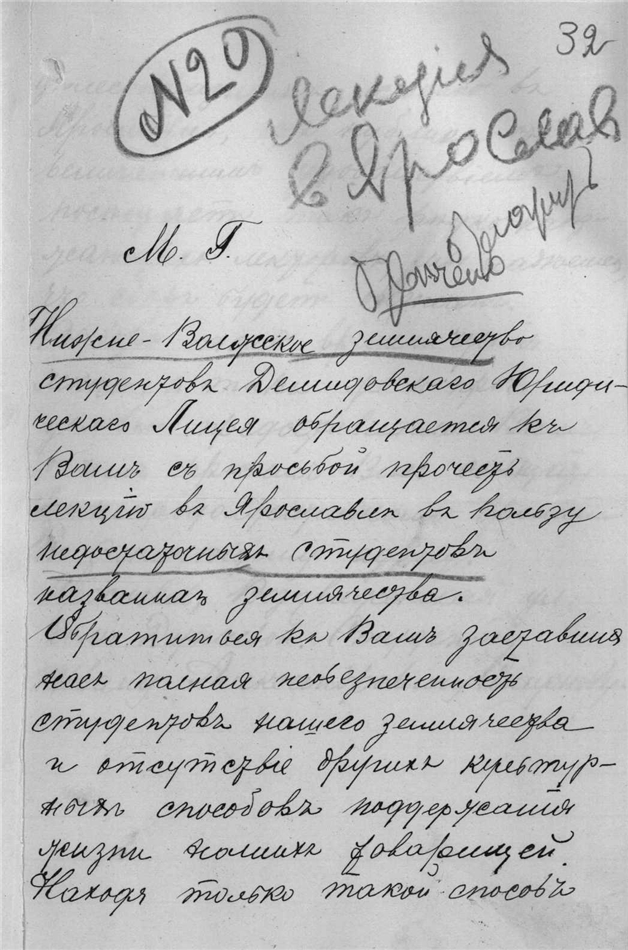 32
№20
Лекція
в Ярослав
М. Г.
Нижне-Волжское землячество
студентовъ Демидовскаго Юриди-
ческаго Лицея обращается къ
Вамъ съ просьбой прочесть
лекцію въ Ярославлѣ въ пользу
недостаточныхъ студентовъ
названнаго землячества.
Обратиться къ Вамъ заставила
насъ полная необезпеченность
студентовъ нашего землячества
и отсутствіе другихъ культур-
ныхъ способовъ поддержанія
жизни нашихъ товарищей.
Находя только такой способъ